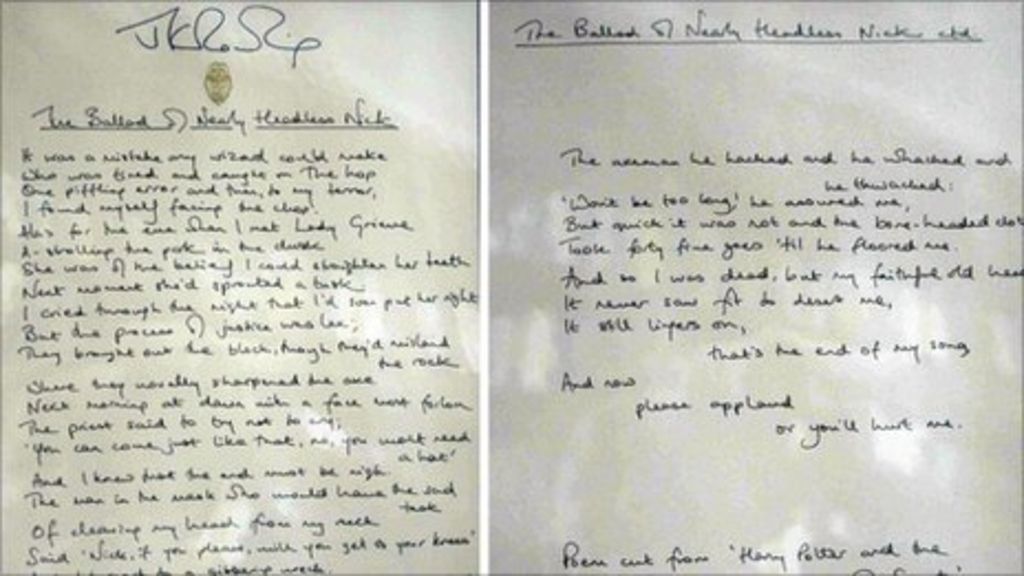 JK Rowling
The Ballad of Nearly Headless Nick
It was a mistake any wizard could make
Who was tired and caught on the hop
One piffling error and then, to my terror,
I found myself facing the chop.
Alas for the eve when I met Lady Grieve
A-strolling the park in the dusk
She was of the belief I could straighten her teeth
Next moment she'd sprouted a tusk
I cried through the night that I'd soon put her right
But the process of justice was lax;
They brought out the block, though they'd mislaid
the rock
Where they usually sharpened the axe
Next morning at dawn with a face most forlorn
The priest said to try not to cry,
'You can come just like that, no, you won't need
a hat'
And I knew that the end must be nigh.
The man in the mask who would have the sad
task
Of cleaving my head from my neck
Said 'Nick, if you please, will you get to your knees'
to a gibbering wreck.
The Ballad of Nearly Headless Nick ctd.
The axeman he hacked and he whacked and
he thwacked:
'Won't be too long' he assured me,
But quick it was not and the bone-headed clot
Took forty five goes 'til he floored me.
And so I was dead, but my faithful old head
It never saw fit to desert me,
It still lingers on,
that's the end of my song
And now
please applaud
or you'll hurt me.
Poem cut from 'Harry Potter and the